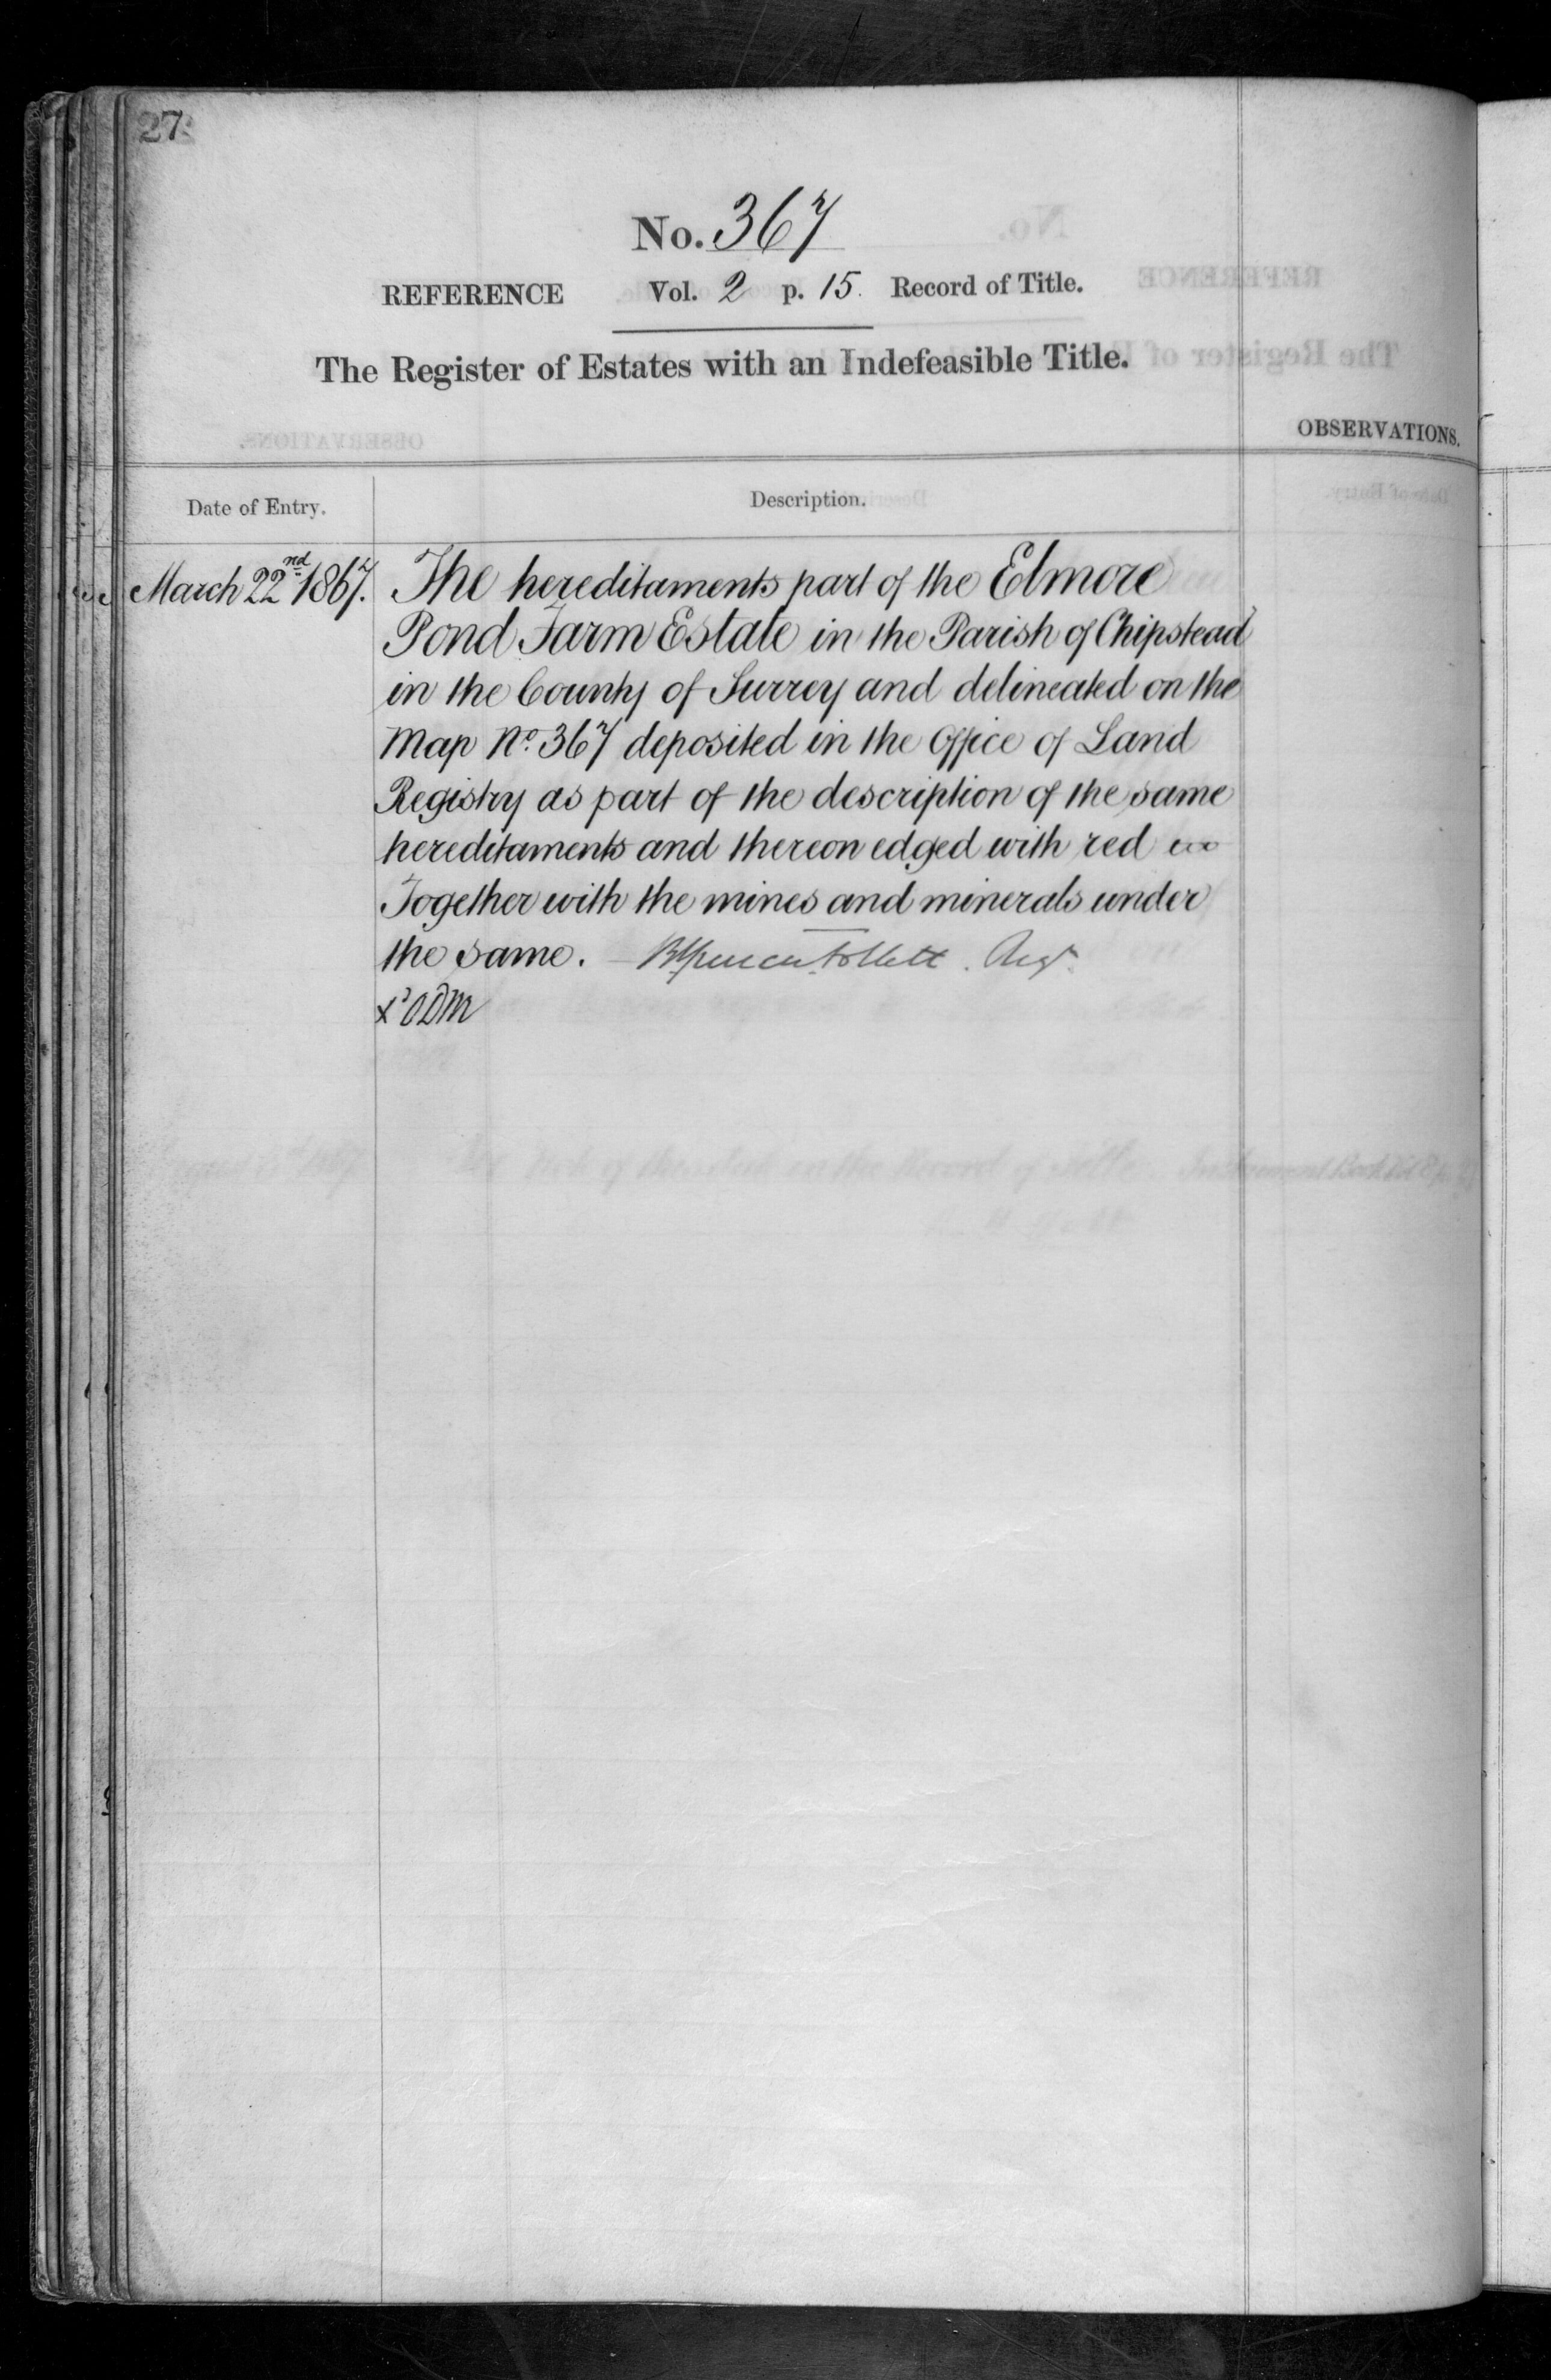 27
No. 367
REFERENCE Vol. 2 p. 15. Record of Title.
The Register of Estates with an Indefeasible Title.
OBSERVATIONS.
Date of Entry. Description.
March 22nd 1867. The hereditaments part of the Elmore
Pond Farm Estate in the Parish of Chipstead
in the County of Surrey and delineated on the
Map No. 367 deposited in the Office of Land
Registry as part of the description of the same
hereditaments and thereon edged with red
Together with the mines and minerals under
the same. Follett. Regr.
ODM